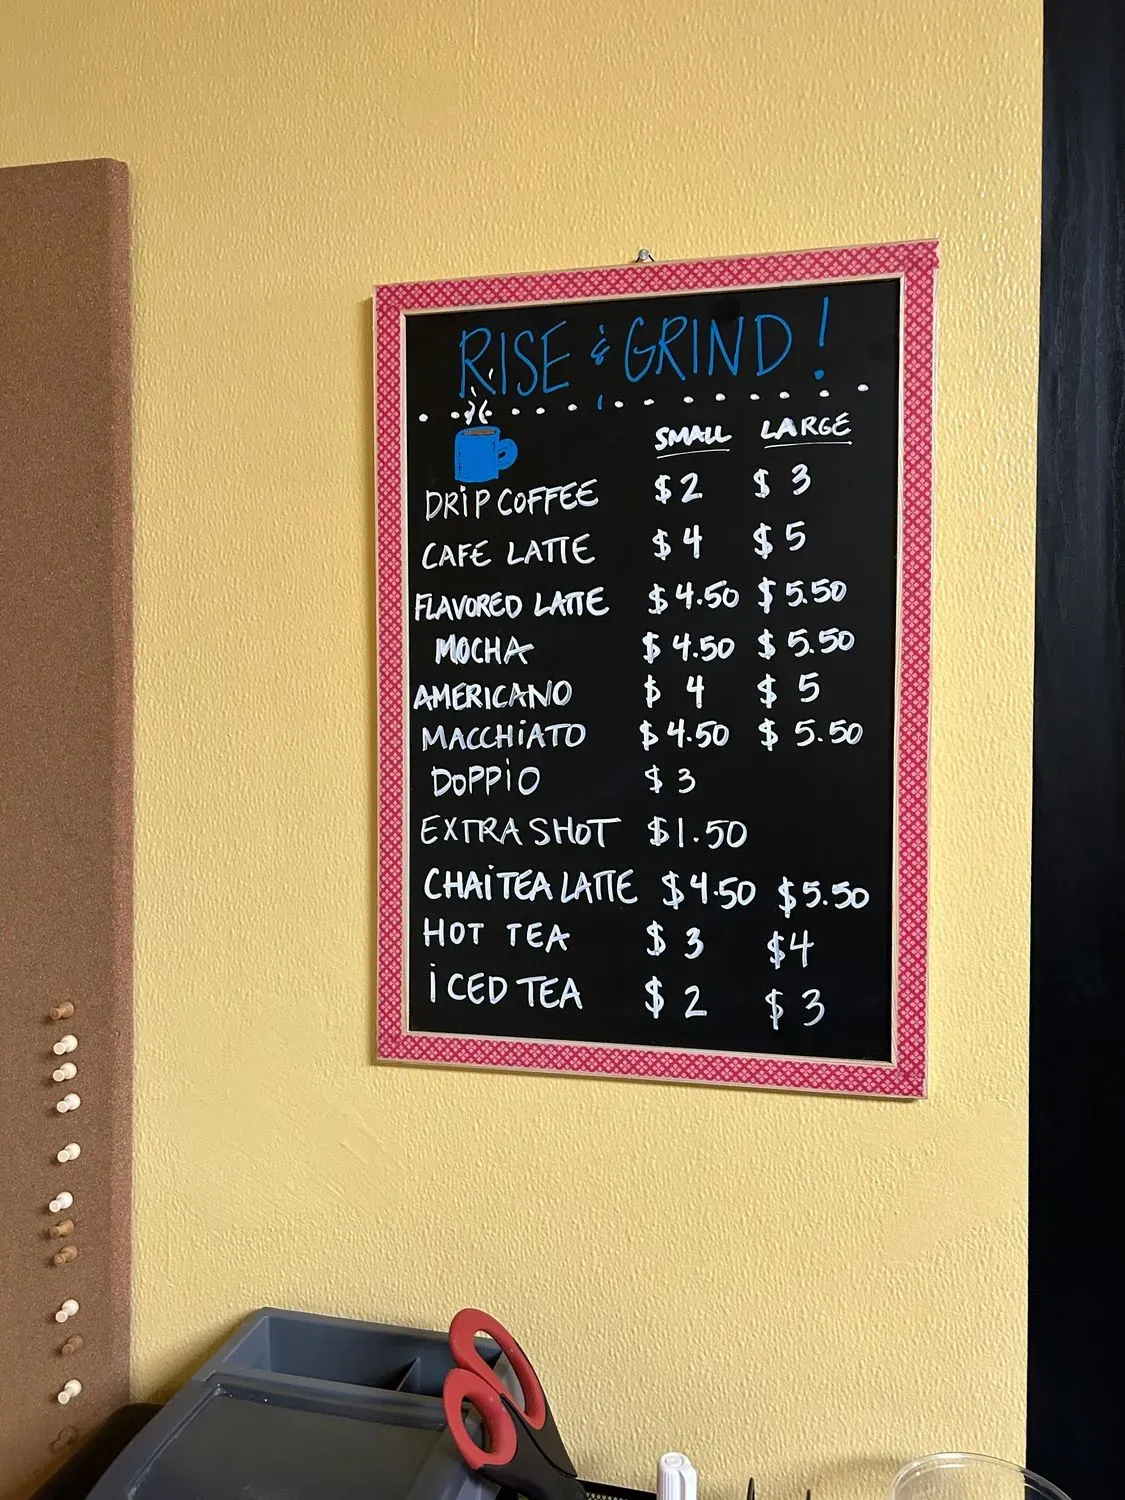 RISE & GRIND!
SMALL LARGE
DRIP COFFEE $2 $3
CAFE LATTE $4 $5
FLAVORED LATTE $4.50 $5.50
MOCHA $4.50 $5.50
AMERICANO $4 $5
MACCHIATO $4.50 $5.50
DOPPIO $3
EXTRA SHOT $1.50
CHAI TEA LATTE $4.50 $5.50
HOT TEA $3 $4
ICED TEA $2 $3